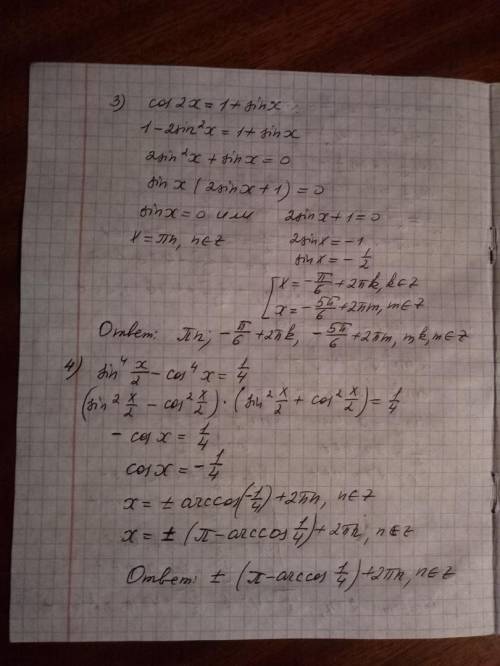 3) cos 2x = 1 + sin x
1 - 2sin²x = 1 + sin x
2sin²x + sin x = 0
sin x (2sin x + 1) = 0
sin x = 0 или 2sin x + 1 = 0
x = πn, n∈Z 2sin x = -1
sin x = -1/2
[ x = -π/6 + 2πk, k∈Z
x = -5π/6 + 2πm, m∈Z
Ответ: πn; -π/6 + 2πk, -5π/6 + 2πm, n,k,m∈Z
4) sin⁴ x/2 - cos⁴ x = 1/4
(sin² x/2 - cos² x/2) · (sin² x/2 + cos² x/2) = 1/4
- cos x = 1/4
cos x = -1/4
x = ± arccos(-1/4) + 2πn, n∈Z
x = ± (π - arccos 1/4) + 2πn, n∈Z
Ответ: ± (π - arccos 1/4) + 2πn, n∈Z